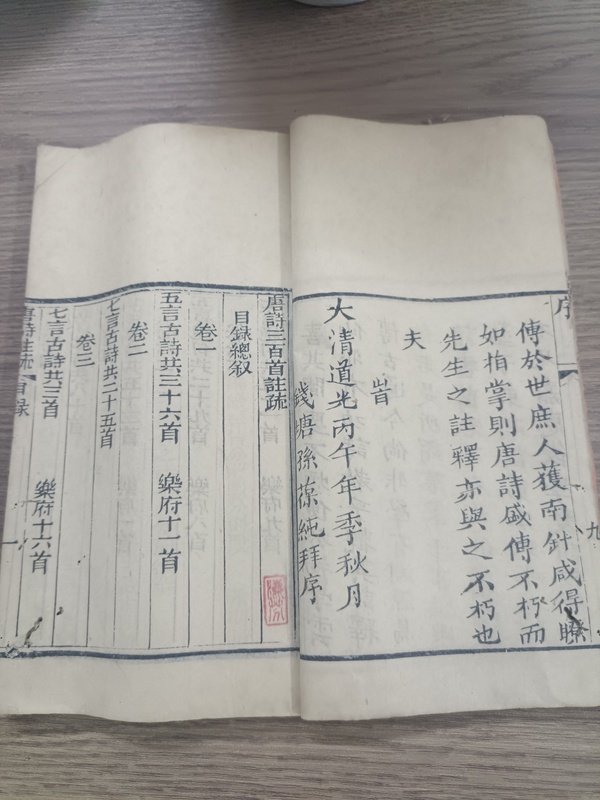 序
九
傳於世庶人獲南針咸得瞭
如拍掌則唐詩盛傳不朽而
先生之註釋亦與之不朽也
夫
旹
大清道光丙午年季秋月
錢塘孫葆純拜序
唐詩三百首註疏
目錄總叙
卷一
五言古詩共三十六首 樂府十一首
卷二
七言古詩共二十五首
卷三
七言古詩共三首 樂府十六首
唐詩註疏
目錄
一